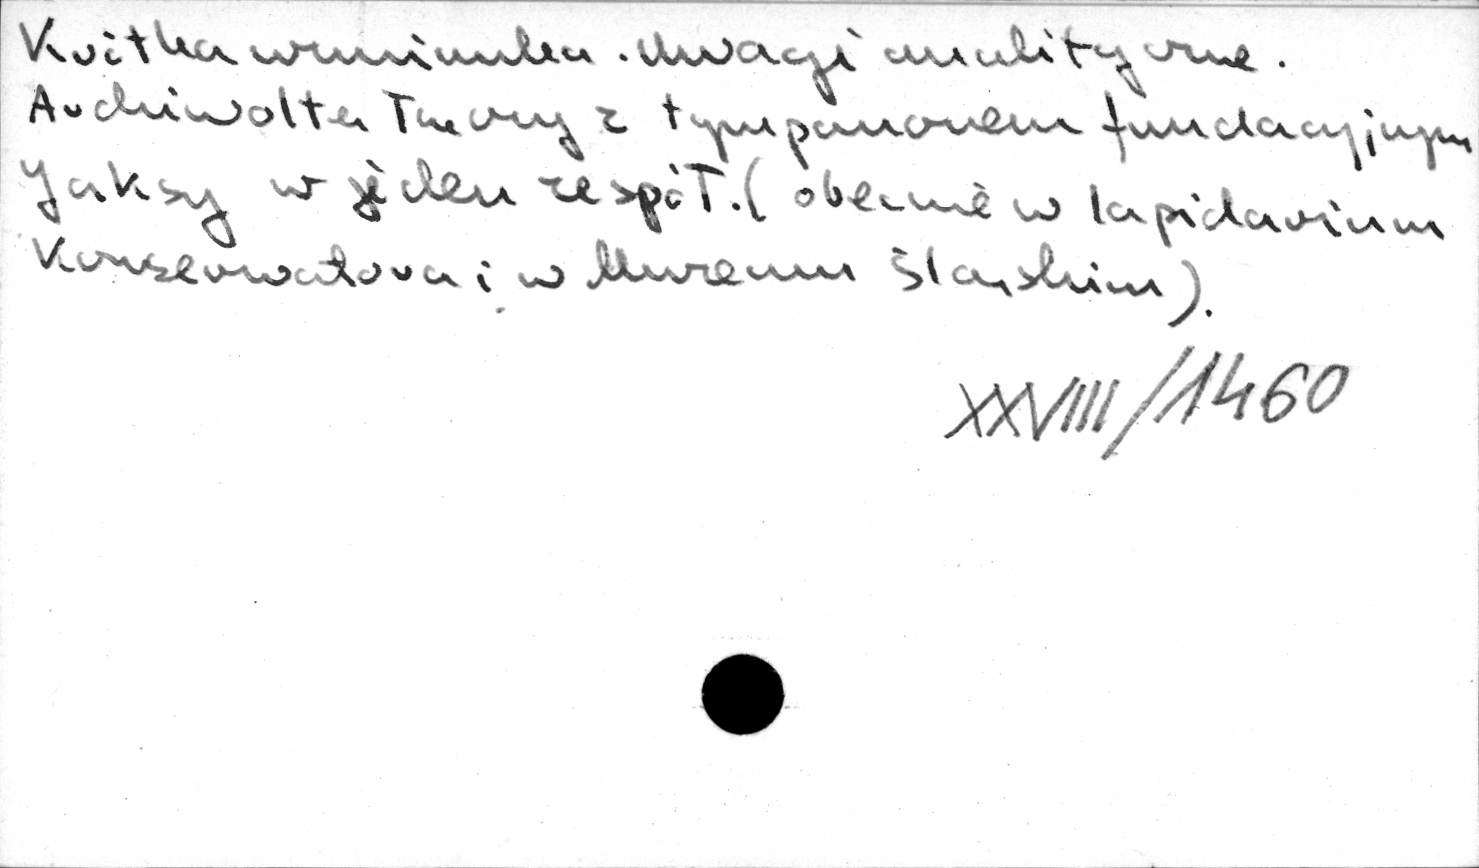 Krótka wzmianka. Uwagi analityczne.
Archiwolta łączy z tympanonem fundacyjnym
Jaksy w jeden zespół. (obecnie w lapidarium
Konserwatora i w Muzeum Śląskim).
XXVIII/1460